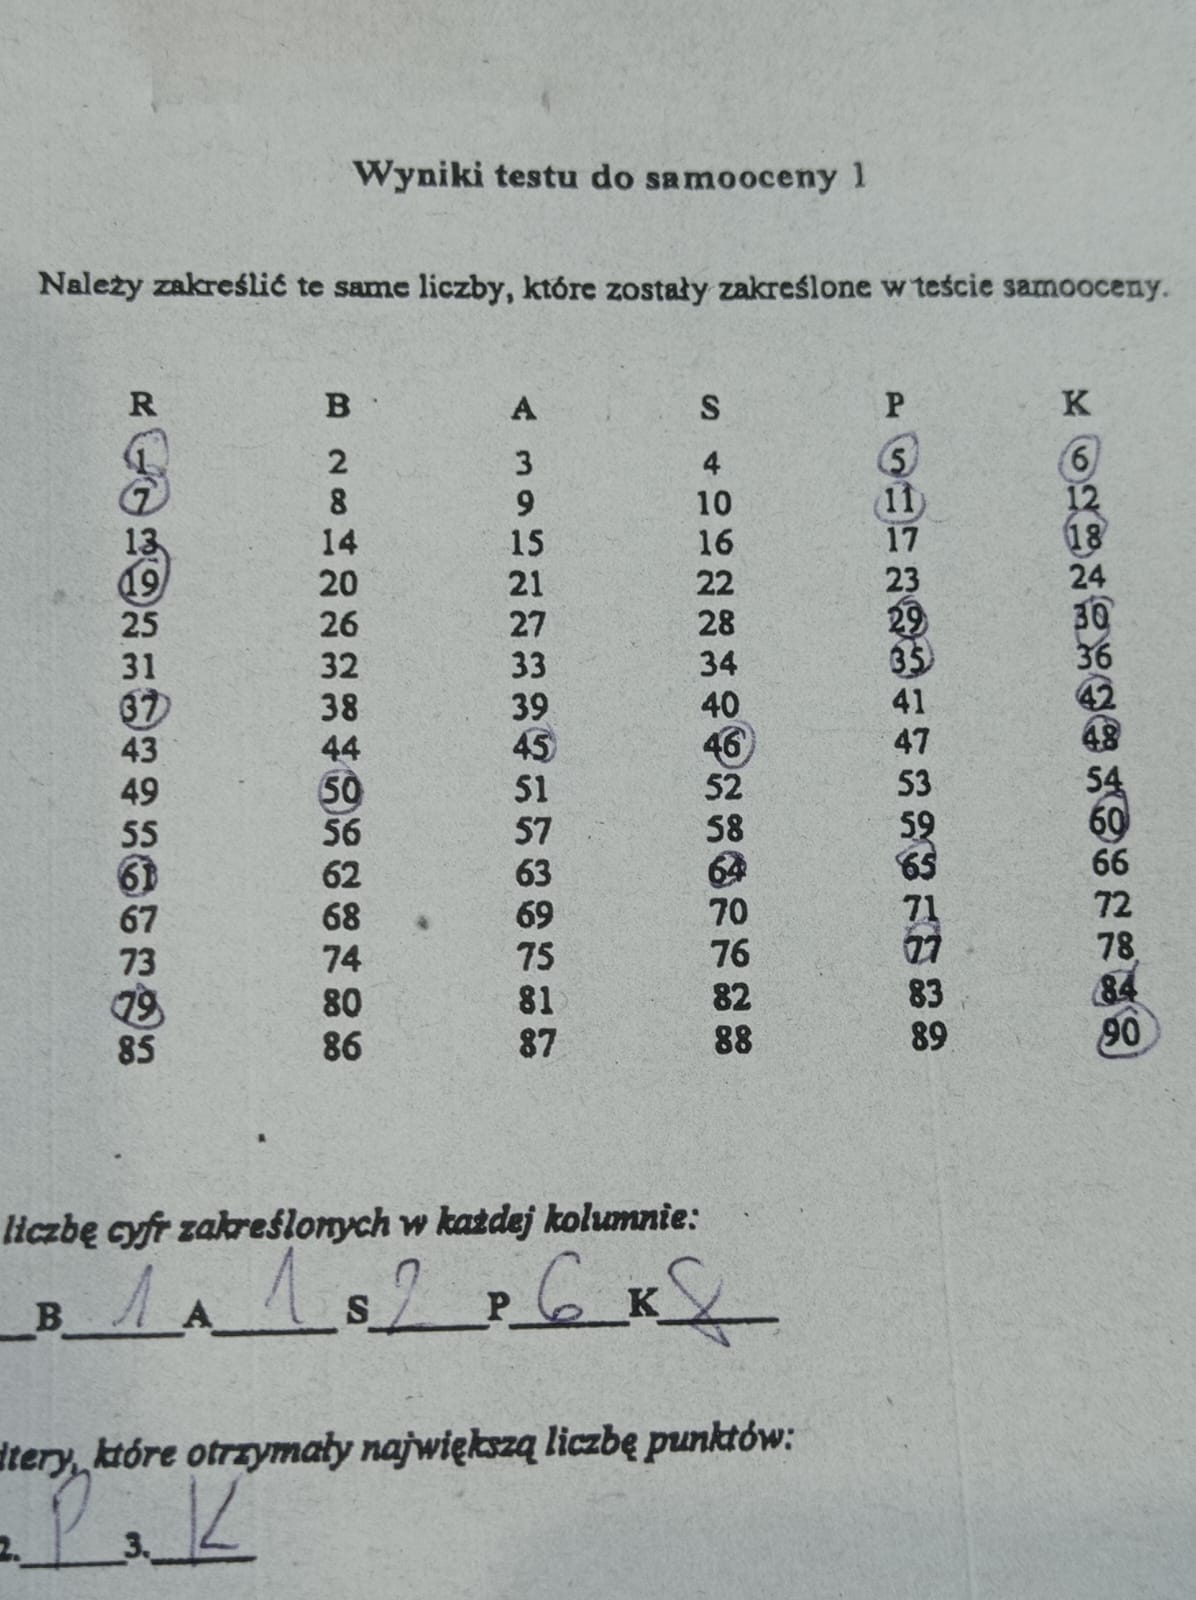 Wyniki testu do samooceny 1
Należy zakreślić te same liczby, które zostały zakreślone w teście samooceny.
R B A S P K
1 2 3 4 5 6
7 8 9 10 11 12
13 14 15 16 17 18
19 20 21 22 23 24
25 26 27 28 29 30
31 32 33 34 35 36
37 38 39 40 41 42
43 44 45 46 47 48
49 50 51 52 53 54
55 56 57 58 59 60
61 62 63 64 65 66
67 68 69 70 71 72
73 74 75 76 77 78
79 80 81 82 83 84
85 86 87 88 89 90
liczbę cyfr zakreślonych w każdej kolumnie:
B 1 A 1 S 2 P 6 K 8
litery, które otrzymały największą liczbę punktów:
2. P 3. K